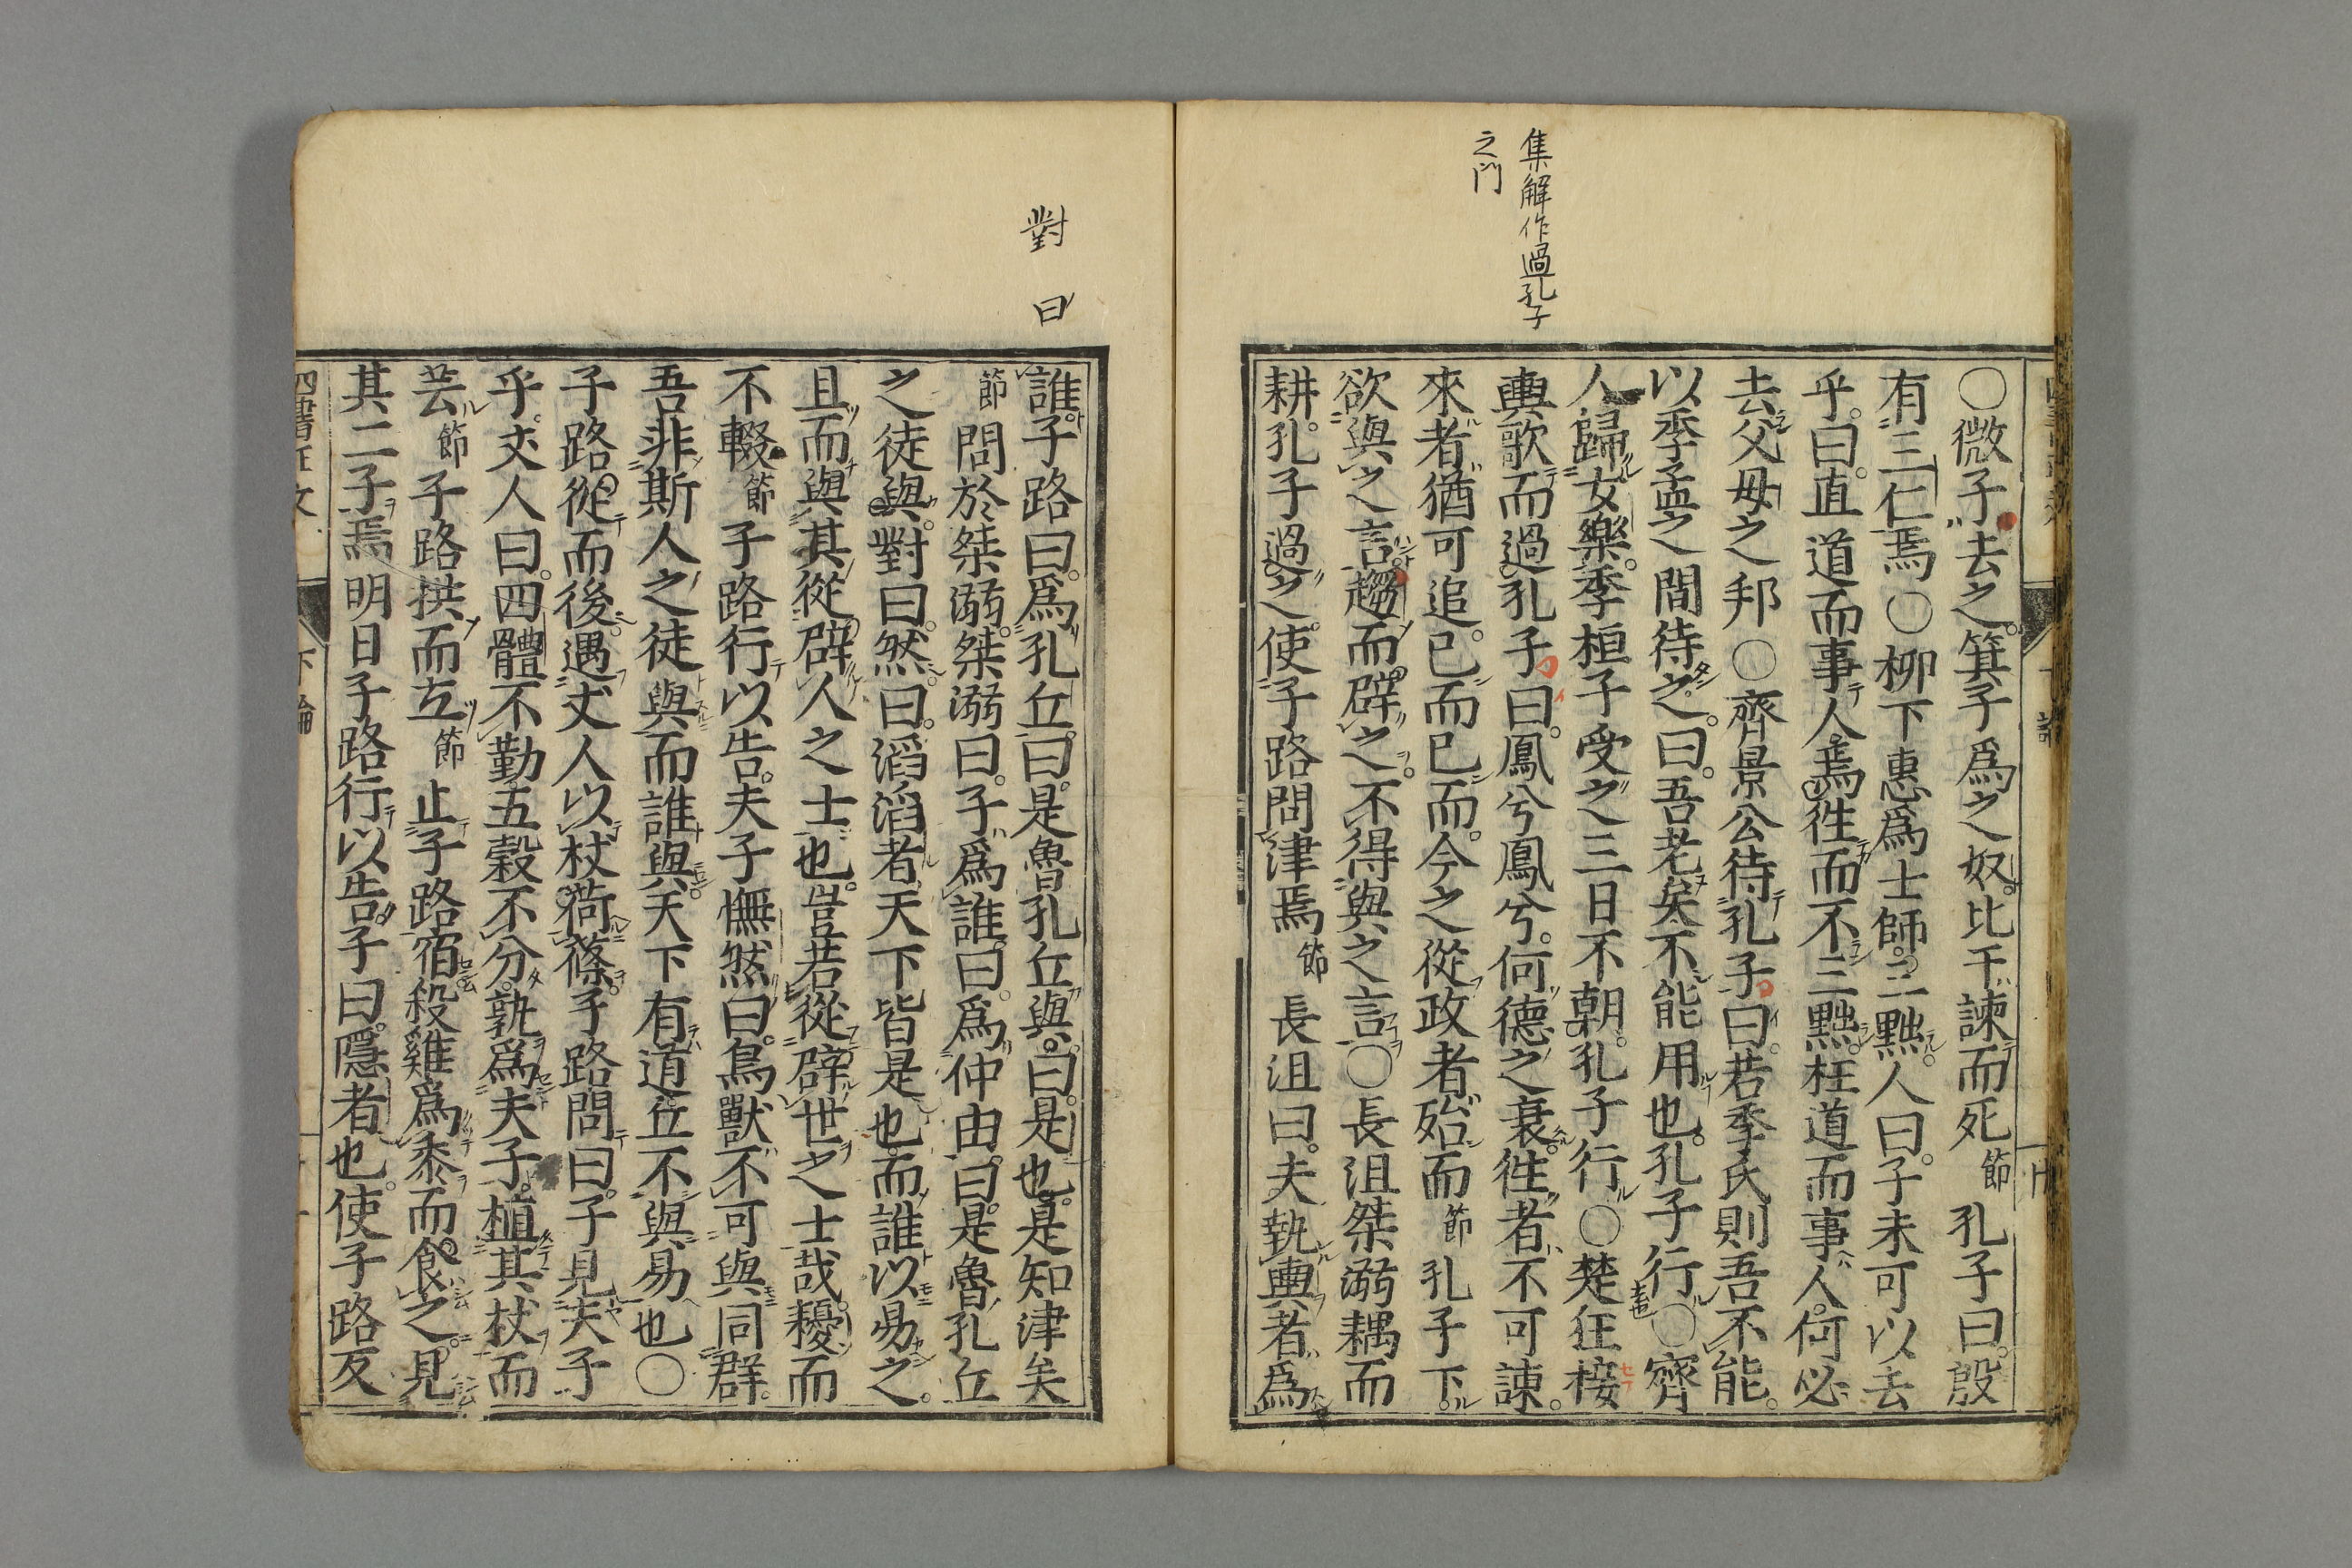 集解作過孔子
之門
〇微子去之。箕子爲之奴。比干諫而死節孔子曰。殷
有三仁焉〇柳下惠爲士師。三黜。人曰。子未可以去
乎。曰。直道而事人。焉徃而不三黜。枉道而事人。何必
去父母之邦〇齊景公待孔子曰。若季氏則吾不能。
以季孟之間待之。曰。吾老矣。不能用也。孔子行〇齊
人歸女樂。季桓子受之。三日不朝。孔子行〇楚狂接
輿歌而過孔子曰。鳳兮鳳兮。何德之衰。徃者不可諫。
來者猶可追。已而已而。今之從政者殆而節孔子下。
欲與之言。趨而辟之。不得與之言〇長沮桀溺耦而
耕。孔子過之。使子路問津焉節長沮曰。夫執輿者爲
對曰
誰。子路曰。爲孔丘。曰。是魯孔丘與。曰。是也。是知津矣
節問於桀溺。桀溺曰。子爲誰。曰。爲仲由。曰。是魯孔丘
之徒與。對曰。然。曰。滔滔者天下皆是也。而誰以易之。
且而與其從辟人之士也。豈若從辟世之士哉。耰而
不輟節子路行以告。夫子憮然曰。鳥獸不可與同群。
吾非斯人之徒與而誰與。天下有道丘不與易也〇
子路從而後。遇丈人以杖荷蓧。子路問曰。子見夫子
乎。丈人曰。四體不勤五穀不分。孰爲夫子。植其杖而
芸節子路拱而立節止子路宿。殺雞爲黍而食之。見
其二子焉明日子路行以告。子曰。隱者也。使子路反
四書正文 下論